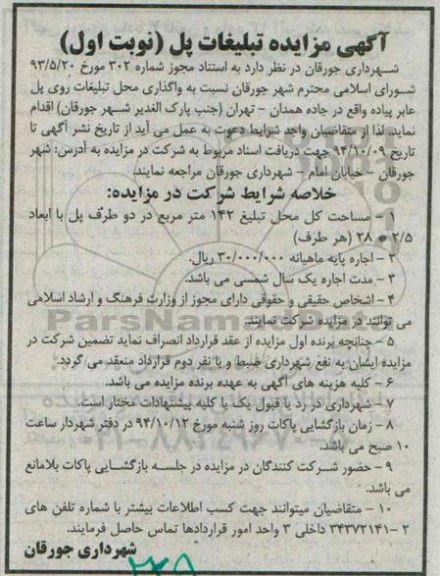 آگهی مزایده تبلیغات پل (نوبت اول)
شهرداری جورقان در نظر دارد به استناد مجوز شماره ۳۰۲ مورخ ۹۳/۵/۲۰
شورای اسلامی محترم شهر جورقان نسبت به واگذاری محل تبلیغات روی پل
عابر پیاده واقع در جاده همدان - تهران (جنب پارک الغدیر شهر جورقان) اقدام
نماید. لذا از متقاضیان واجد شرایط دعوت به عمل می آید از تاریخ نشر آگهی تا
تاریخ ۹۴/۱۰/۰۹ جهت دریافت اسناد مربوط به شرکت در مزایده به آدرس: شهر
جورقان - خیابان امام - شهرداری جورقان مراجعه نمایند.
خلاصه شرایط شرکت در مزایده:
۱ - مساحت کل محل تبلیغ ۱۴۲ متر مربع در دو طرف پل با ابعاد
۲/۵ * ۲۸ (هر طرف)
۲ - اجاره پایه ماهیانه ۳۰/۰۰۰/۰۰۰ ریال.
۳ - مدت اجاره یک سال شمسی می باشد.
۴ - اشخاص حقیقی و حقوقی دارای مجوز از وزارت فرهنگ و ارشاد اسلامی
می توانند در مزایده شرکت نمایند.
۵ - چنانچه برنده اول مزایده از عقد قرارداد انصراف نماید تضمین شرکت در
مزایده ایشان به نفع شهرداری ضبط و با نفر دوم قرارداد منعقد می گردد.
۶ - کلیه هزینه های آگهی به عهده برنده مزایده می باشد.
۷ - شهرداری در رد یا قبول یک یا کلیه پیشنهادات مختار است.
۸ - زمان بازگشایی پاکات روز شنبه مورخ ۹۴/۱۰/۱۲ در دفتر شهردار ساعت
۱۰ صبح می باشد.
۹ - حضور شرکت کنندگان در مزایده در جلسه بازگشایی پاکات بلامانع
می باشد.
۱۰ - متقاضیان میتوانند جهت کسب اطلاعات بیشتر با شماره تلفن های
۲ - ۳۴۳۷۲۱۴۱ داخلی ۳ واحد امور قراردادها تماس حاصل فرمایند.
شهرداری جورقان
ParsNamadData
۰۲۱-۸۸۳۴۹۶۷۰